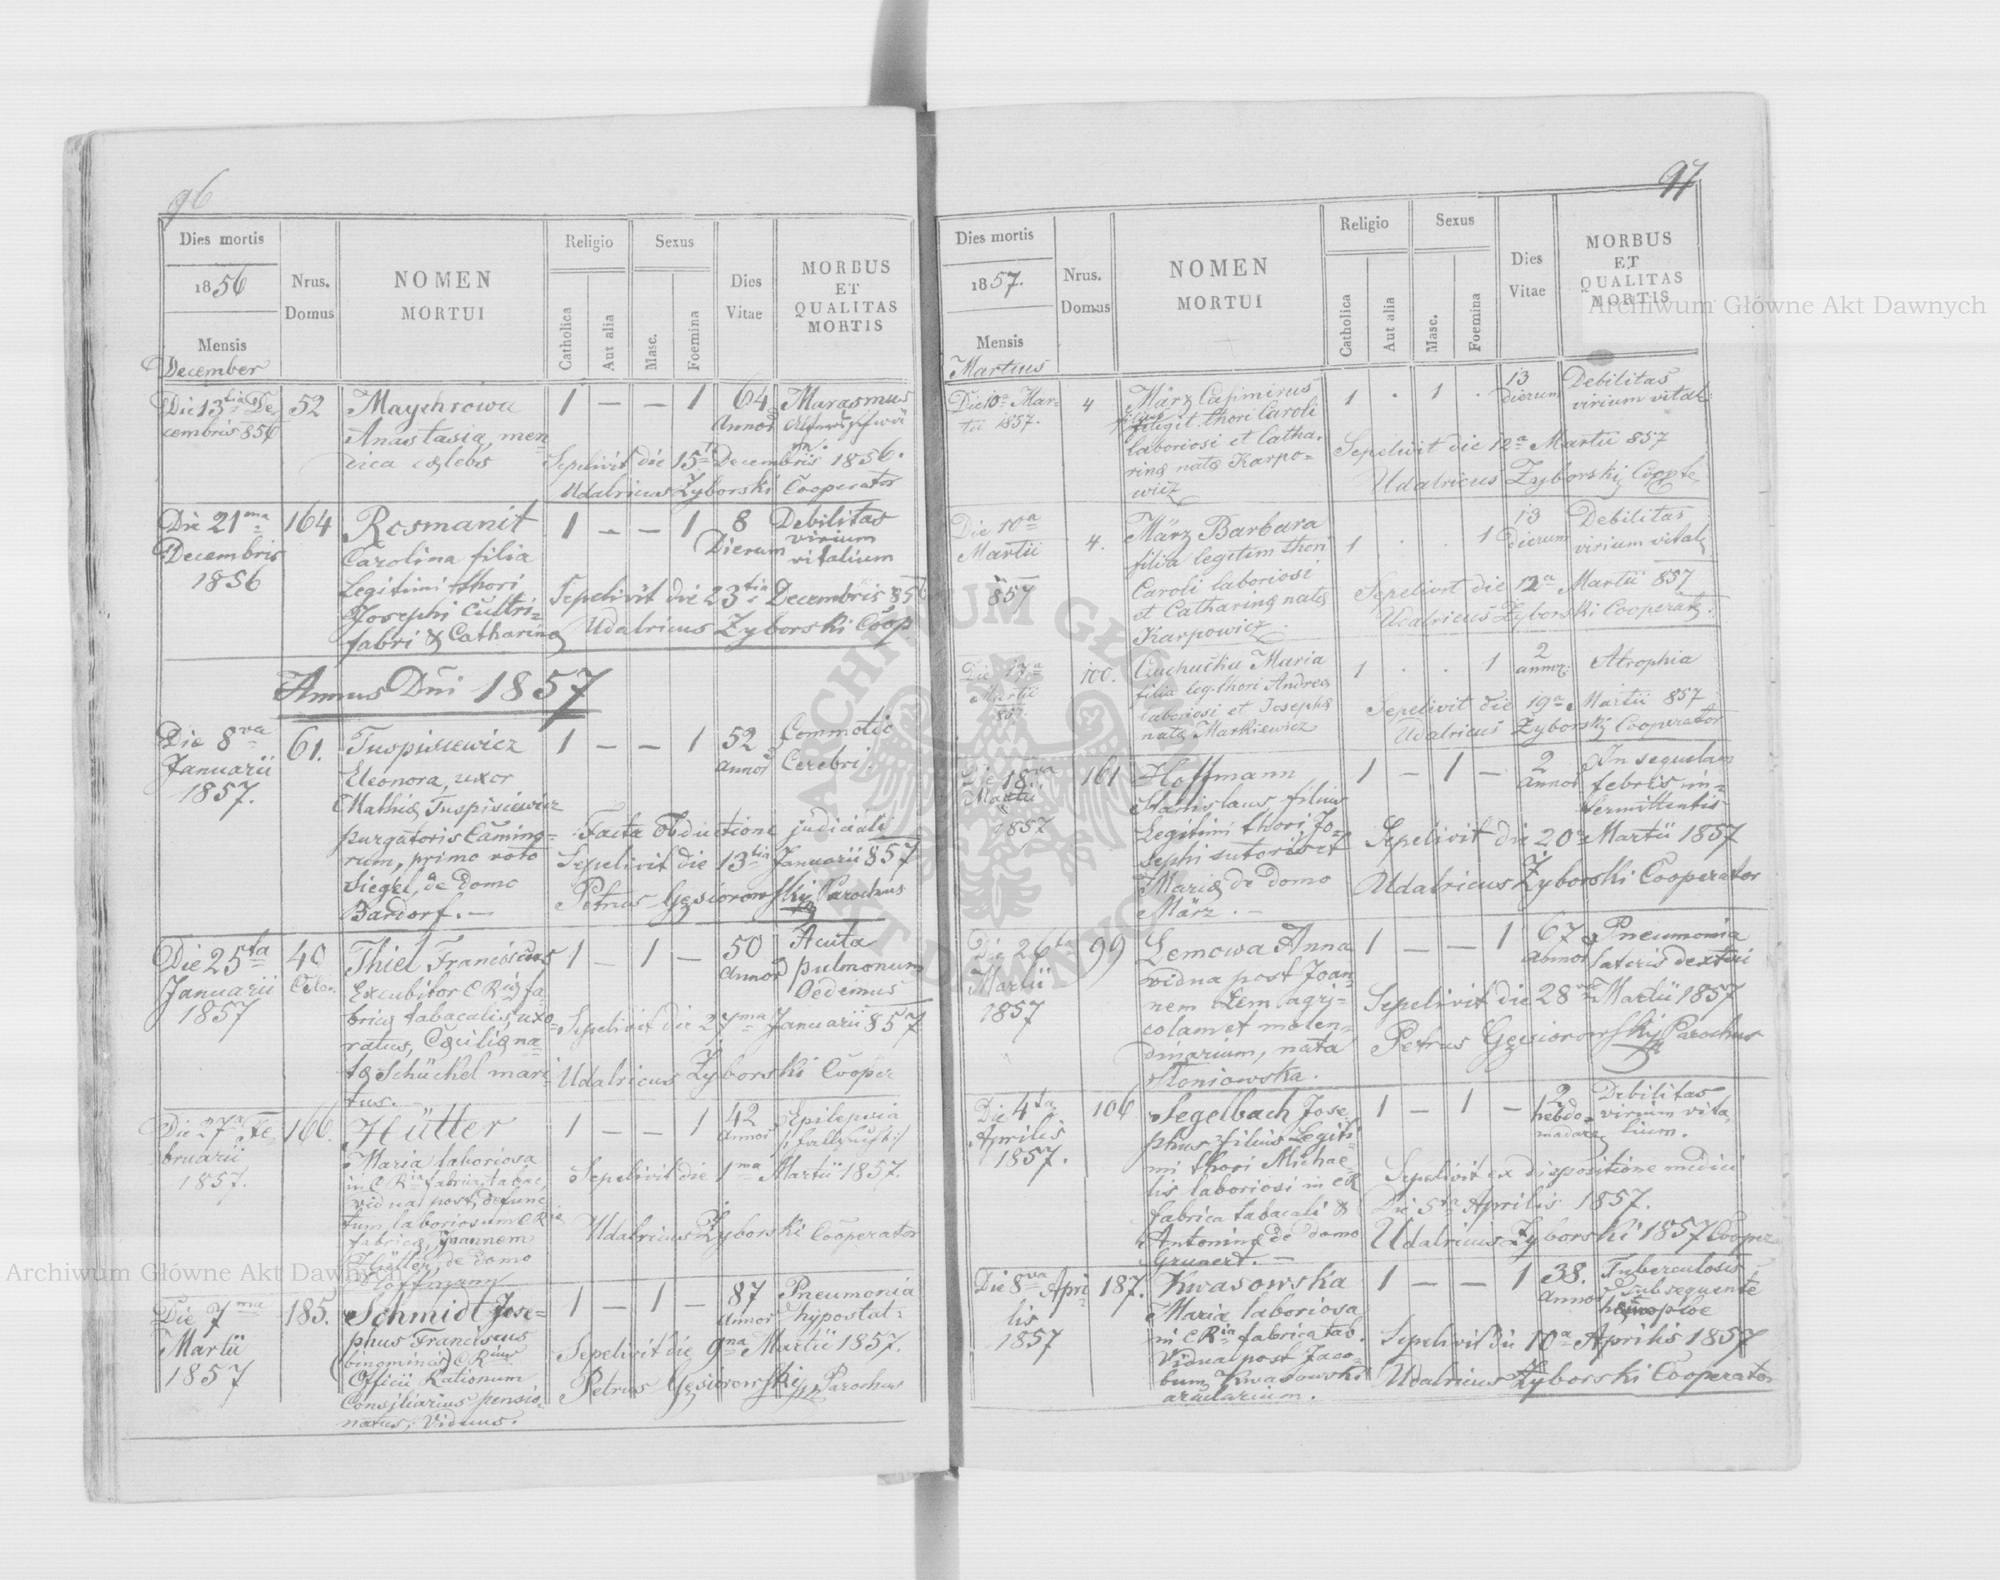 96
Dies mortis
1856
Mensis
December
Nrus.
Domus
NOMEN
MORTUI
Religio
Catholica
Aut alia
Sexus
Masc.
Foemina
Dies
Vitae
MORBUS
ET
QUALITAS
MORTIS
Die 13tia De
cembris 856
52
Maychrowa
Anastasia, men
dica cælebs
1 — — 1
64
Annor
Marasmus
Sepelivit die 15ta Decembris 1856.
Udalricus Zyborski Cooperator
Die 21ma
Decembris
1856
164
Rosmanit
Carolina filia
Legitimi thori
Josephi Cultri=
fabri & Catharinę
1 — — 1
8
Dierum
Debilitas
virium
vitalium
Sepelivit die 23tia Decembris 856
Udalricus Zyborski Coop
Annus Dni 1857
Die 8va
Januarii
1857.
61.
Tuspisiewicz
Eleonora, uxor
Mathię Tuspisiewicz
purgatoris Camino-
rum, primo voto
Siegel, de Domo
Bardorf. —
1 — — 1
52
Annor
Commotio
Cerebri.
Facta Obductione judiciali
Sepelivit die 13tia Januarii 857
Petrus Gęsiorowski Parochus
Die 25ta
Januarii
1857
40
Thiel Franciscus
Excubitor C Rię fa
bricę tabacalis, uxo-
ratus, Cęcilię na-
tę Schückel mari-
tus. —
1 — 1 —
50
Annor
Acuta
pulmonum
Oedemus
Sepelivit die 27ma Januarii 857
Udalricus Zyborski Cooper
Die 27a Fe
bruarii
1857.
166.
Hütter
Maria laboriosa
in C Ria fabrica tabac,
vidua post defunc
tum laboriosum C Rię
fabricę, Joannem
Hütter, de Domo
Hoffmann
1 — — 1
42
Annor
Epilepsia
Sepelivit die 1ma Martii 1857.
Udalricus Zyborski Cooperator
Die 7ma
Martii
1857
185.
Schmidt Jose=
phus Franciscus
binominis C Rius
Officii Rationum
Consiliarius pensio-
natus, Viduus.
1 — 1 —
87
Annor
Pneumonia
hypostat:
Sepelivit die 9na Martii 1857.
Petrus Gęsiorowski Parochus
97
Dies mortis
1857.
Mensis
Martius
Nrus.
Domus
NOMEN
MORTUI
Religio
Catholica
Aut alia
Sexus
Masc.
Foemina
Dies
Vitae
MORBUS
ET
QUALITAS
MORTIS
Die 10a Mar-
tii 1857.
4
März Casimirus
filius legit. thori Caroli
laboriosi et Catha.
rinę natę Karpo=
wicz
1 . 1 .
13
dierum
Debilitas
virium vital:
Sepelivit die 12a Martii 857
Udalricus Zyborski
Die 10a
Martii
857
4.
März Barbara
filia legitim thori
Caroli laboriosi
et Catharinę natę
Karpowicz.
1 . . 1
13
dierum
Debilitas
virium vital
Sepelivit die 12a Martii 857
Udalricus Zyborski Cooperat:
Die 17a
Martii
857.
100.
Maria
filia leg. thori Andreę
laboriosi et Josephę
natę Markiewicz
1 . . 1
2
annor:
Atrophia
Sepelivit die 19a Martii 857
Udalricus Zyborski Cooperator
Die 18va
Martii
1857
161
Hoffmann
Stanislaus filius
Legitimi thori Jo=
sephi sutoris et
Marię de Domo
März. —
1 — 1 —
2
Annor
In sequelam
febris in=
termittentis
Sepelivit die 20a Martii 1857
Udalricus Zyborski Cooperator
Die 26ta
Martii
1857
99
Lemowa Anna
vidua post Joan
nem Lem agri-
colam et molen
dinarium, nata
Słoniowska.
1 — — 1
67
Annor
Pneumonia
lateris dextri
Sepelivit die 28va Martii 1857
Petrus Gęsiorowski Parochus
Die 4ta
Aprilis
1857.
106
Segelbach Jose-
phus filius Legiti-
mi thori Michae-
lis laboriosi in C R
fabrica tabacali &
Antoninę de Domo
Grunert. —
1 — 1 —
2
hebdo-
madarę
Debilitas
virium vita,
lium.
Sepelivit ex dispositione medici
Die 5ta Aprilis 1857.
Udalricus Zyborski 1857 Cooper
Die 8va Apri
lis
1857
187.
Kwasowska
Maria laboriosa
in C Ria fabrica tab.
Vidua post Jaco-
bum Kwasowski
arcularium.
1 — — 1
38.
Annor
Tuberculosis
subsequente
hęmoptoe
Sepelivit die 10a Aprilis 1857
Udalricus Zyborski Cooperator
Archiwum Główne Akt Dawnych
Archiwum Główne Akt Dawnych
ARCHIWUM GŁÓWNE AKT DAWNYCH